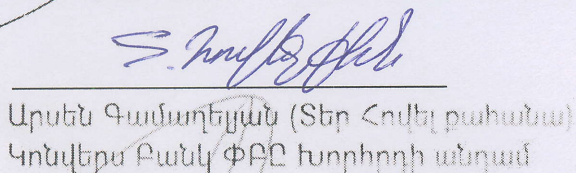 Տ. Հովել քհն
Արսեն Գամաղելյան (Տեր Հովել քահանա)
Կոնվերս Բանկ ՓԲԸ Խորհրդի անդամ